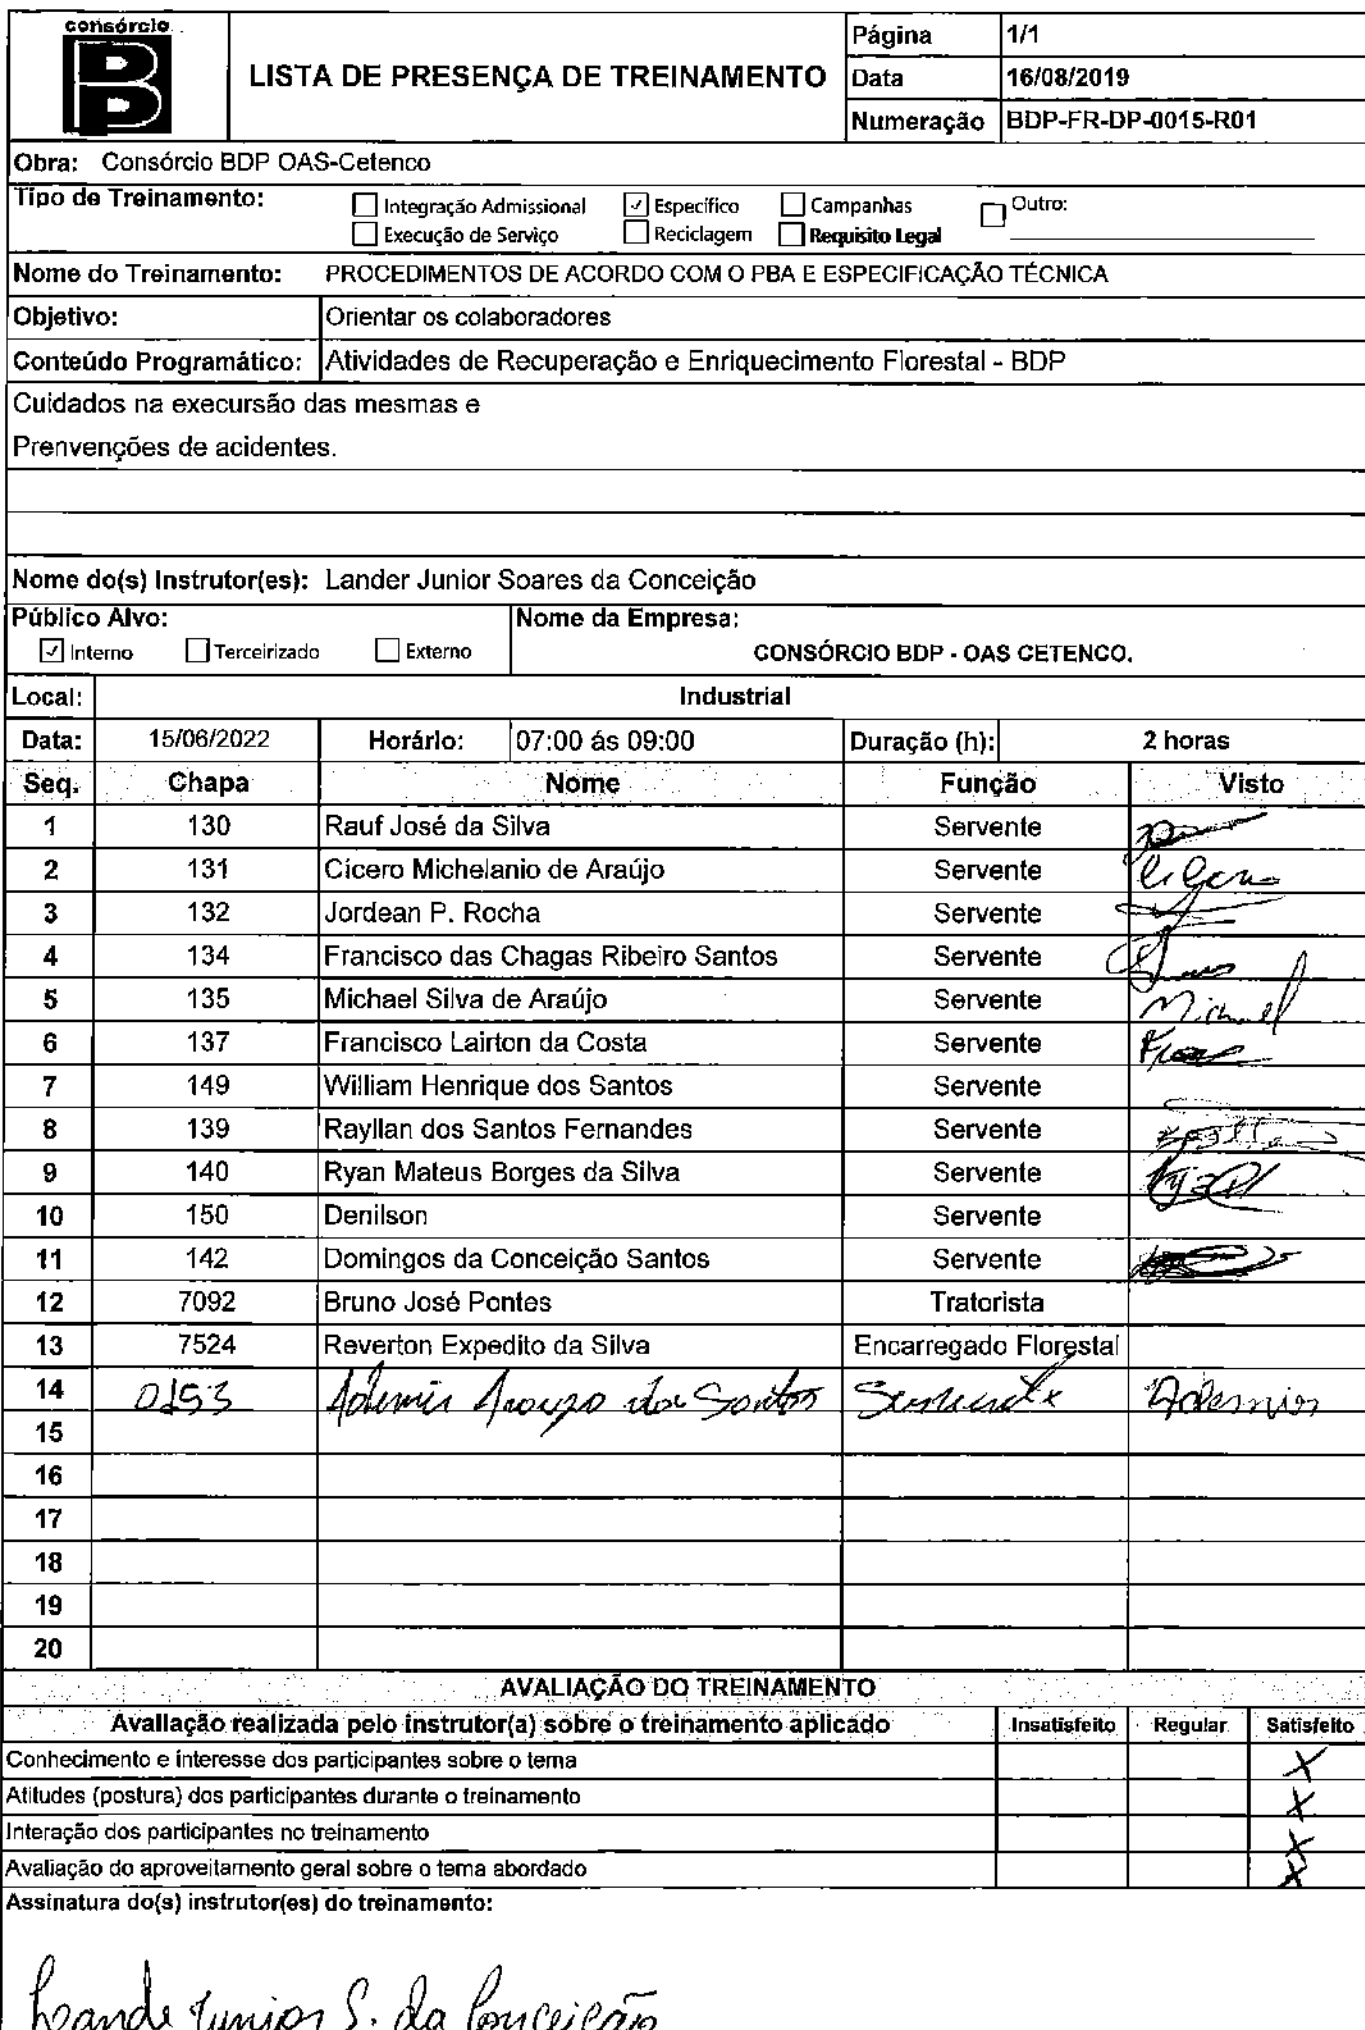 consórcio
B
LISTA DE PRESENÇA DE TREINAMENTO
Página 1/1
Data 16/08/2019
Numeração BDP-FR-DP-0015-R01
Obra: Consórcio BDP OAS-Cetenco
Tipo de Treinamento:
Integração Admissional Específico Campanhas Outro:
Execução de Serviço Reciclagem Requisito Legal
Nome do Treinamento: PROCEDIMENTOS DE ACORDO COM O PBA E ESPECIFICAÇÃO TÉCNICA
Objetivo: Orientar os colaboradores
Conteúdo Programático: Atividades de Recuperação e Enriquecimento Florestal - BDP
Cuidados na execursão das mesmas e
Prenvenções de acidentes.
Nome do(s) Instrutor(es): Lander Junior Soares da Conceição
Público Alvo: Nome da Empresa:
Interno Terceirizado Externo CONSÓRCIO BDP - OAS CETENCO.
Local: Industrial
Data: 15/06/2022 Horário: 07:00 ás 09:00 Duração (h): 2 horas
Seq. Chapa Nome Função Visto
1 130 Rauf José da Silva Servente
2 131 Cícero Michelanio de Araújo Servente
3 132 Jordean P. Rocha Servente
4 134 Francisco das Chagas Ribeiro Santos Servente
5 135 Michael Silva de Araújo Servente Michael
6 137 Francisco Lairton da Costa Servente
7 149 William Henrique dos Santos Servente
8 139 Rayllan dos Santos Fernandes Servente
9 140 Ryan Mateus Borges da Silva Servente
10 150 Denilson Servente
11 142 Domingos da Conceição Santos Servente
12 7092 Bruno José Pontes Tratorista
13 7524 Reverton Expedito da Silva Encarregado Florestal
14 0153 Ademir Araujo dos Santos Servente Ademir
15
16
17
18
19
20
AVALIAÇÃO DO TREINAMENTO
Avaliação realizada pelo instrutor(a) sobre o treinamento aplicado Insatisfeito Regular Satisfeito
Conhecimento e interesse dos participantes sobre o tema X
Atitudes (postura) dos participantes durante o treinamento X
Interação dos participantes no treinamento X
Avaliação do aproveitamento geral sobre o tema abordado X
Assinatura do(s) instrutor(es) do treinamento:
Lande Junior S. da Conceição